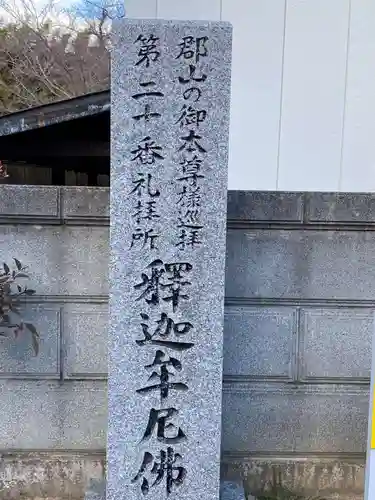 郡山の御本尊様巡拝
第二十番礼拝所
釋迦牟尼佛